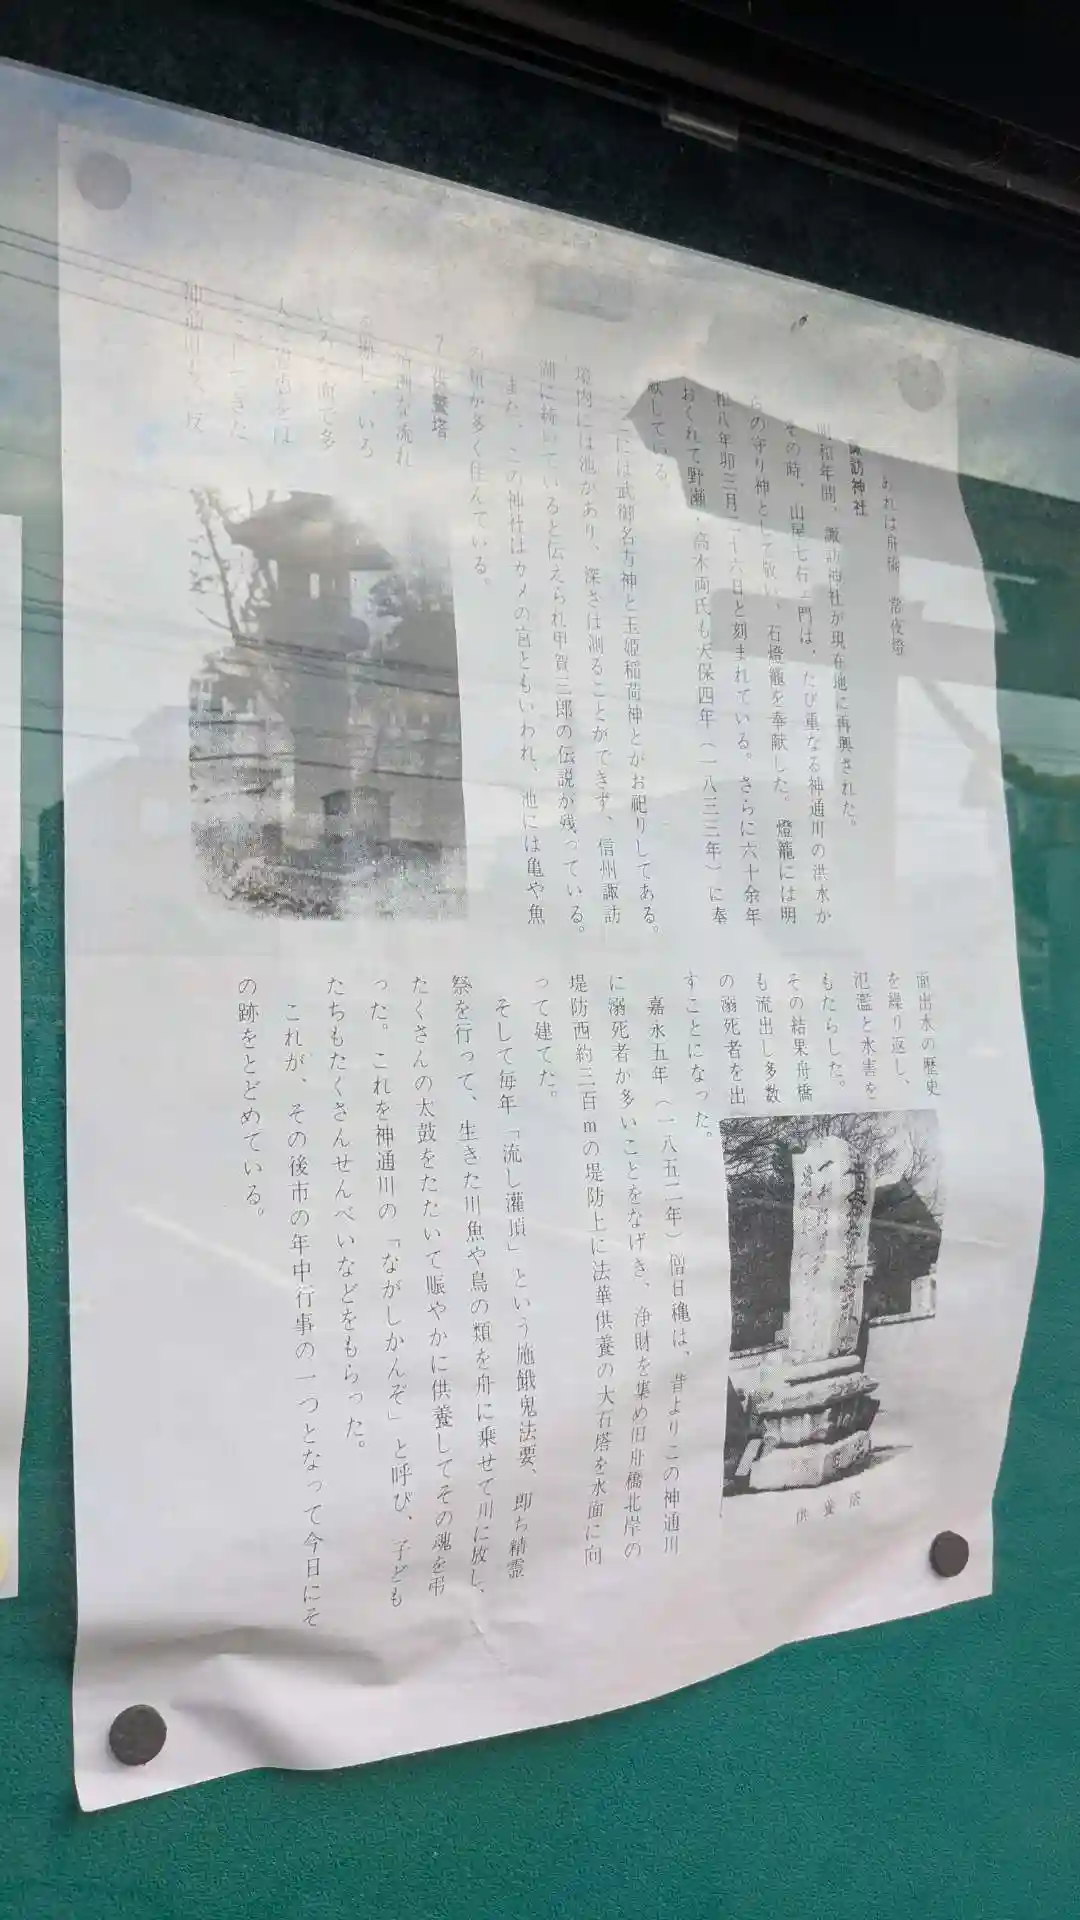 あれは舟橋 常夜燈
諏訪神社
明和年間、諏訪神社が現在地に再興された。
その時、山屋七右ェ門は、たび重なる神通川の洪水か
らの守り神として敬い、石燈籠を奉献した。燈籠には明
和八年卯三月二十六日と刻まれている。さらに六十余年
おくれて野瀬・高木両氏も天保四年(一八三三年)に奉
献している。
には武御名方神と玉姫稲荷神とがお祀りしてある。
境内には池があり、深さは測ることができず、信州諏訪
湖に続いていると伝えられ甲賀三郎の伝説が残っている。
また、この神社はカメの宮ともいわれ、池には亀や魚
の類が多く住んでいる。
7 供養塔
な流れ
いろ
いろな面で多
神通川も、反
面出水の歴史
を繰り返し、
氾濫と水害を
もたらした。
その結果舟橋
も流出し多数
の溺死者を出
すことになった。
嘉永五年(一八五二年)僧日穐は、昔よりこの神通川
に溺死者が多いことをなげき、浄財を集め旧舟橋北岸の
堤防西約三百mの堤防上に法華供養の大石塔を水面に向
って建てた。
そして毎年「流し灌頂」という施餓鬼法要、即ち精霊
祭を行って、生きた川魚や鳥の類を舟に乗せて川に放し、
たくさんの太鼓をたたいて賑やかに供養してその魂を弔
った。これを神通川の「ながしかんぞ」と呼び、子ども
たちもたくさんせんべいなどをもらった。
これが、その後市の年中行事の一つとなって今日にそ
の跡をとどめている。
供養塔